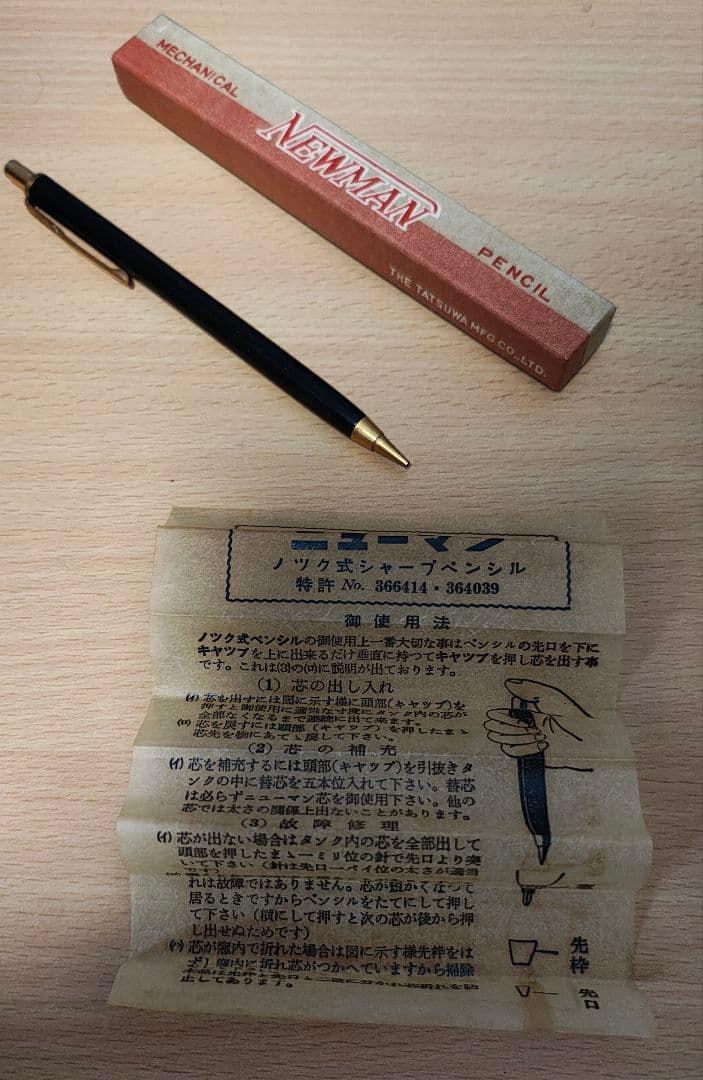 MECHANICAL
NEWMAN
PENCIL
THE TATSUWA MFG CO.,LTD.
ニューマン
ノツク式シャープペンシル
特許 No. 366414・364039
御使用法
ノツク式ペンシルの御使用上一番大切な事はペンシルの先口を下に
キャツプを上に出来るだけ垂直に持つてキャツプを押し芯を出す事
です。これは(3)の(ロ)に説明が出ております。
(1) 芯の出し入れ
(イ) 芯を出すには図に示す様に頭部(キャツプ)を
押すと御使用に適当な寸度にタンク内の芯が
全部なくなるまで連続に出て来ます。
(ロ) 芯を戻すには頭部(キャツプ)を押したまゝ
芯先を物にあてゝ戻して下さい。
(2) 芯の補充
(イ) 芯を補充するには頭部(キャツプ)を引抜きタ
ンクの中に替芯を五本位入れて下さい。替芯
は必らずニューマン芯を御使用下さい。他の
芯では太さの関係上出ないことがあります。
(3) 故障修理
(イ) 芯が出ない場合はタンク内の芯を全部出して
頭部を押したまゝ一ミリ位の針で先口より突
いて下さい(針は先口一パイ位の太さが適当
です)
れは故障ではありません。芯が短かくなつて
居るときですからペンシルをたてにして押し
て下さい(横にして押すと次の芯が後から押
し出せぬためです)
(ハ) 芯が窓内で折れた場合は図に示す様先枠をは
ずし窓内に折れ芯がつかへていますから掃除
止してあります。
先枠
先口